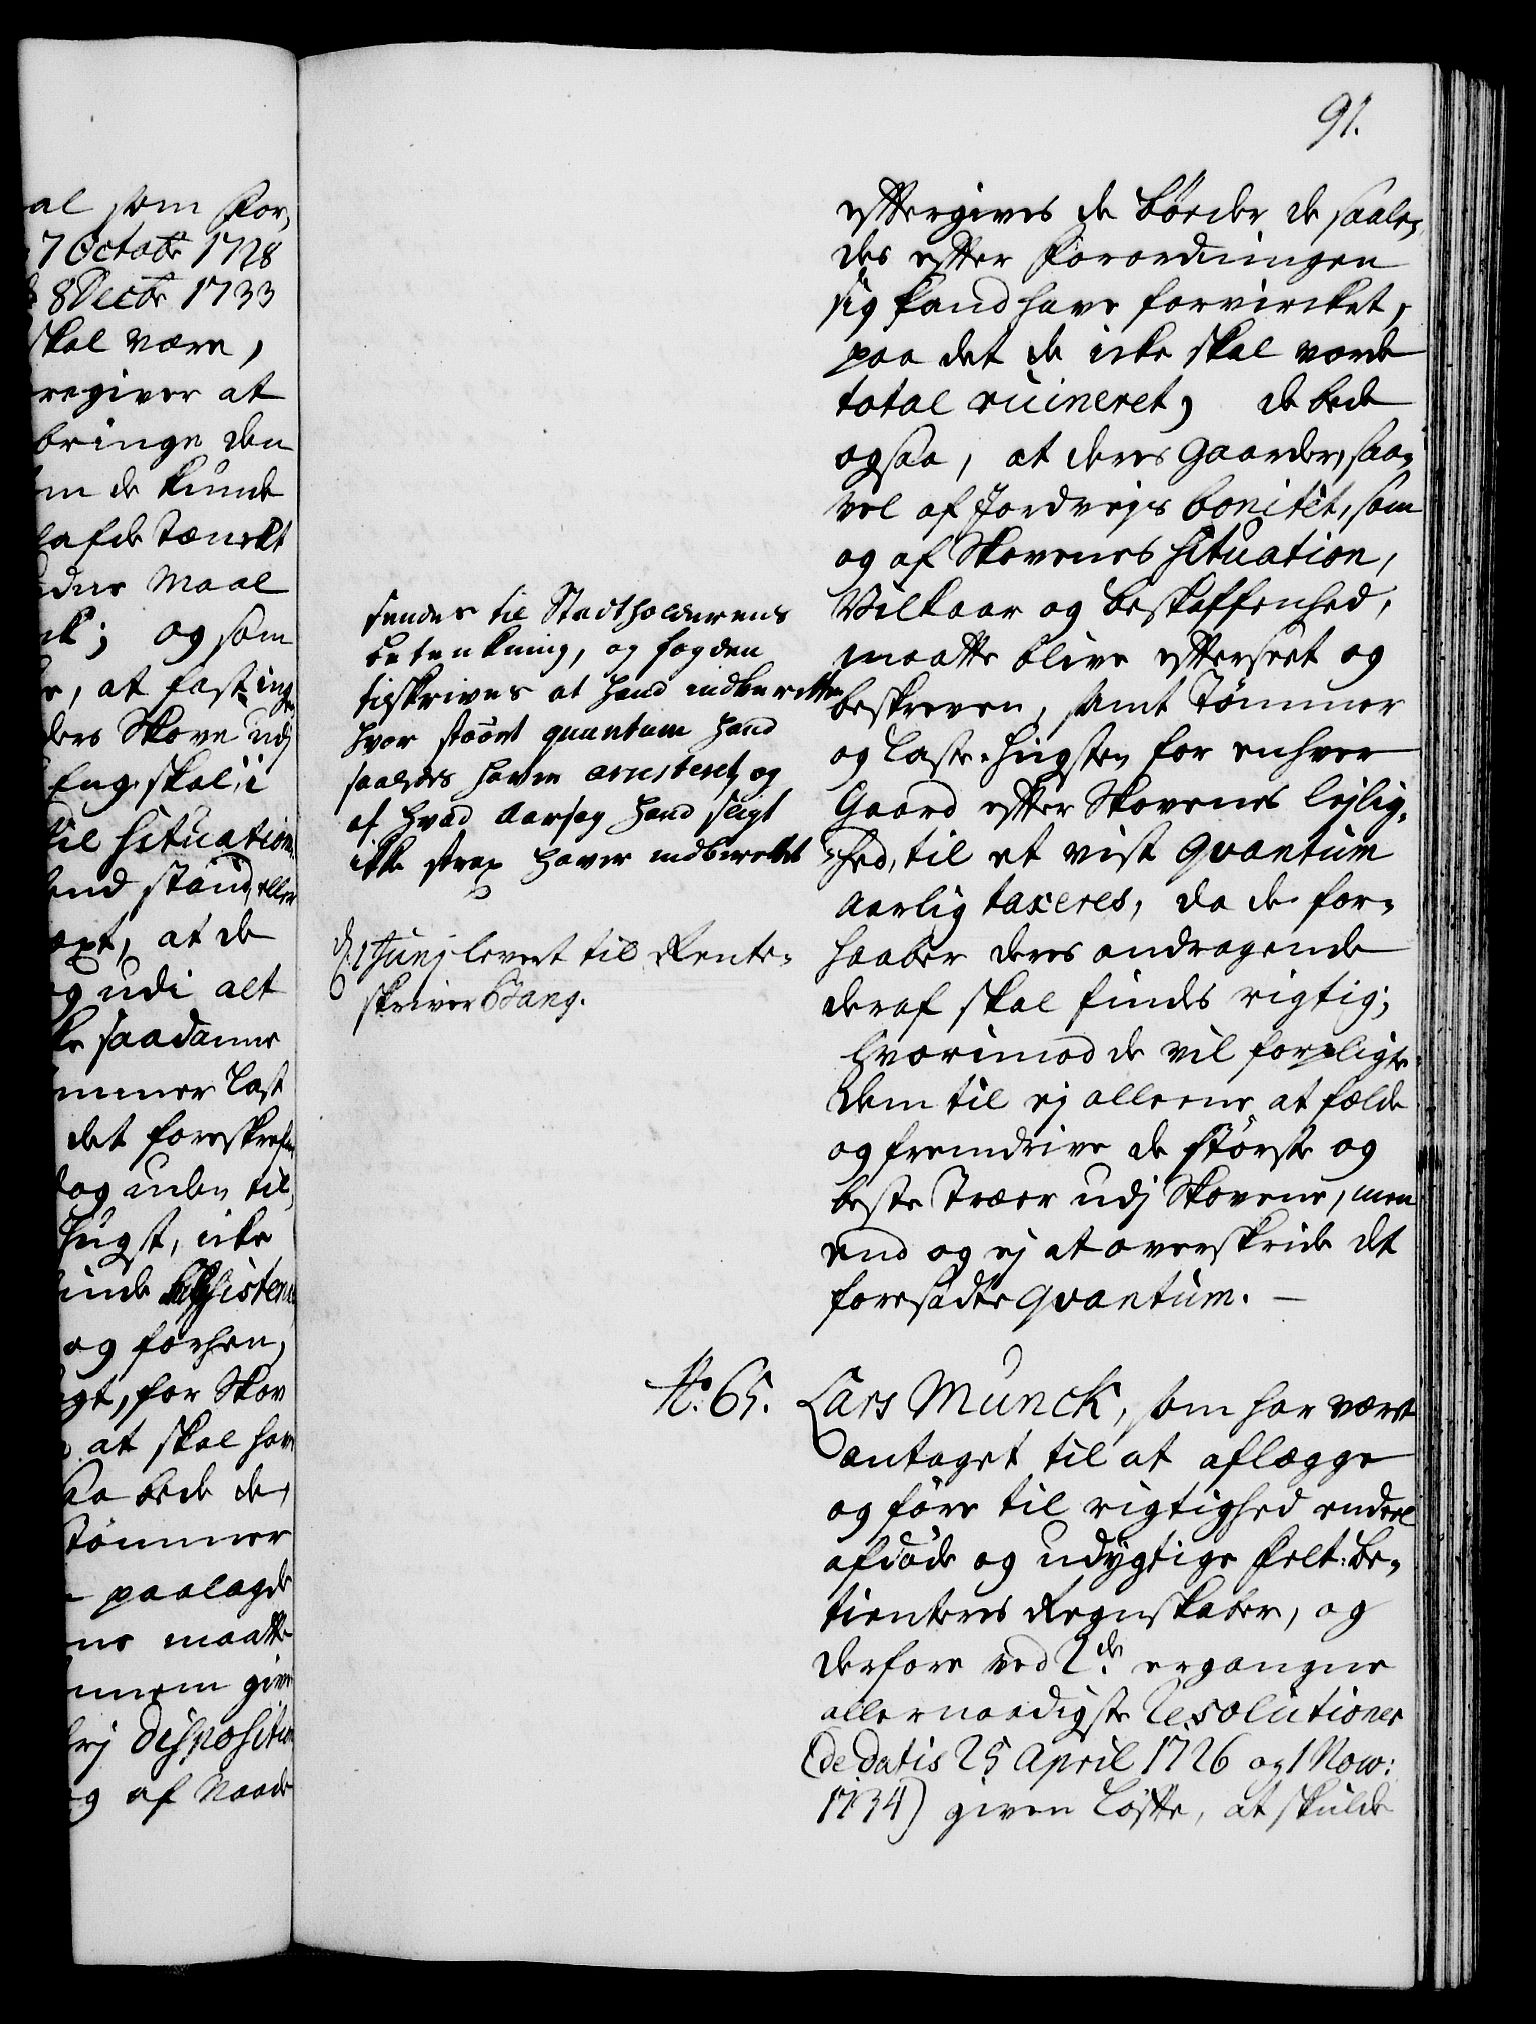 91.
al som For,
7 Octobr 1728
8 Decbr 1733
skal være,
regiver at
bringe den
m de kunde
lafde Tænckt
Maal
ck; og som
, at fast ing
ders Skove udj
Eng skal, i
til Situation
End stand, eller
oxt, at de
g udi alt
ke saadanne
mmer Last
det foreskrefne
og uden til,
Hugst, icke
inde Assistence
og forhen,
gt, for Skov
at skal have
saa bede de,
Tømmer
paalagde
ne maatte
give
frj Disposition
g af Naade
efftergives de bøeder de saale,
des effter Forordningen
sig kand have forvircket,
paa det de icke skal vorde
total ruineret, de bede
ogsaa, at deres Gaarder, saa,
vel af Jordvejs bonitet, som
og af Skovenes Situation,
Vilkaar og beskaffenhed,
maatte blive effterseet og
beskreven, samt Tømmer
og Laste-Hugsten for enhver
Gaard effter Skovenes lejlig,
hed, til et vist Qvantum
Aarlig taxeres, da de for,
haaber deres andragende
deraf skal findes rigtig;
Hvorimod de vil forpligte
dem til ej alleene at fælde
og fremdrive de største og
beste Træer udj Skovene, men
end og ej at overskride det
foresadte Qvantum. —
sendes til Stadtholderens
betenkning, og fogden
tilskrives at hand indberetter
hvor stoort quantum hand
saaledes haver arresteret, og
af hvad Aarsag hand sligt
ikke strax haver indberettet
d. 1 Junj levert til Rente-
skriver Bang.
No. 65. Lars Munck, som har været
antaget til at aflægge
og føre til rigtighed endeel
afdøde og udygtige Felt-be,
tienteres Regnskaber, og
derfore ved 2de ergangne
allernaadigste Resolutioner
(de datis 25 April 1726 og 1 Nov:
1734) given Løffte, at skulde